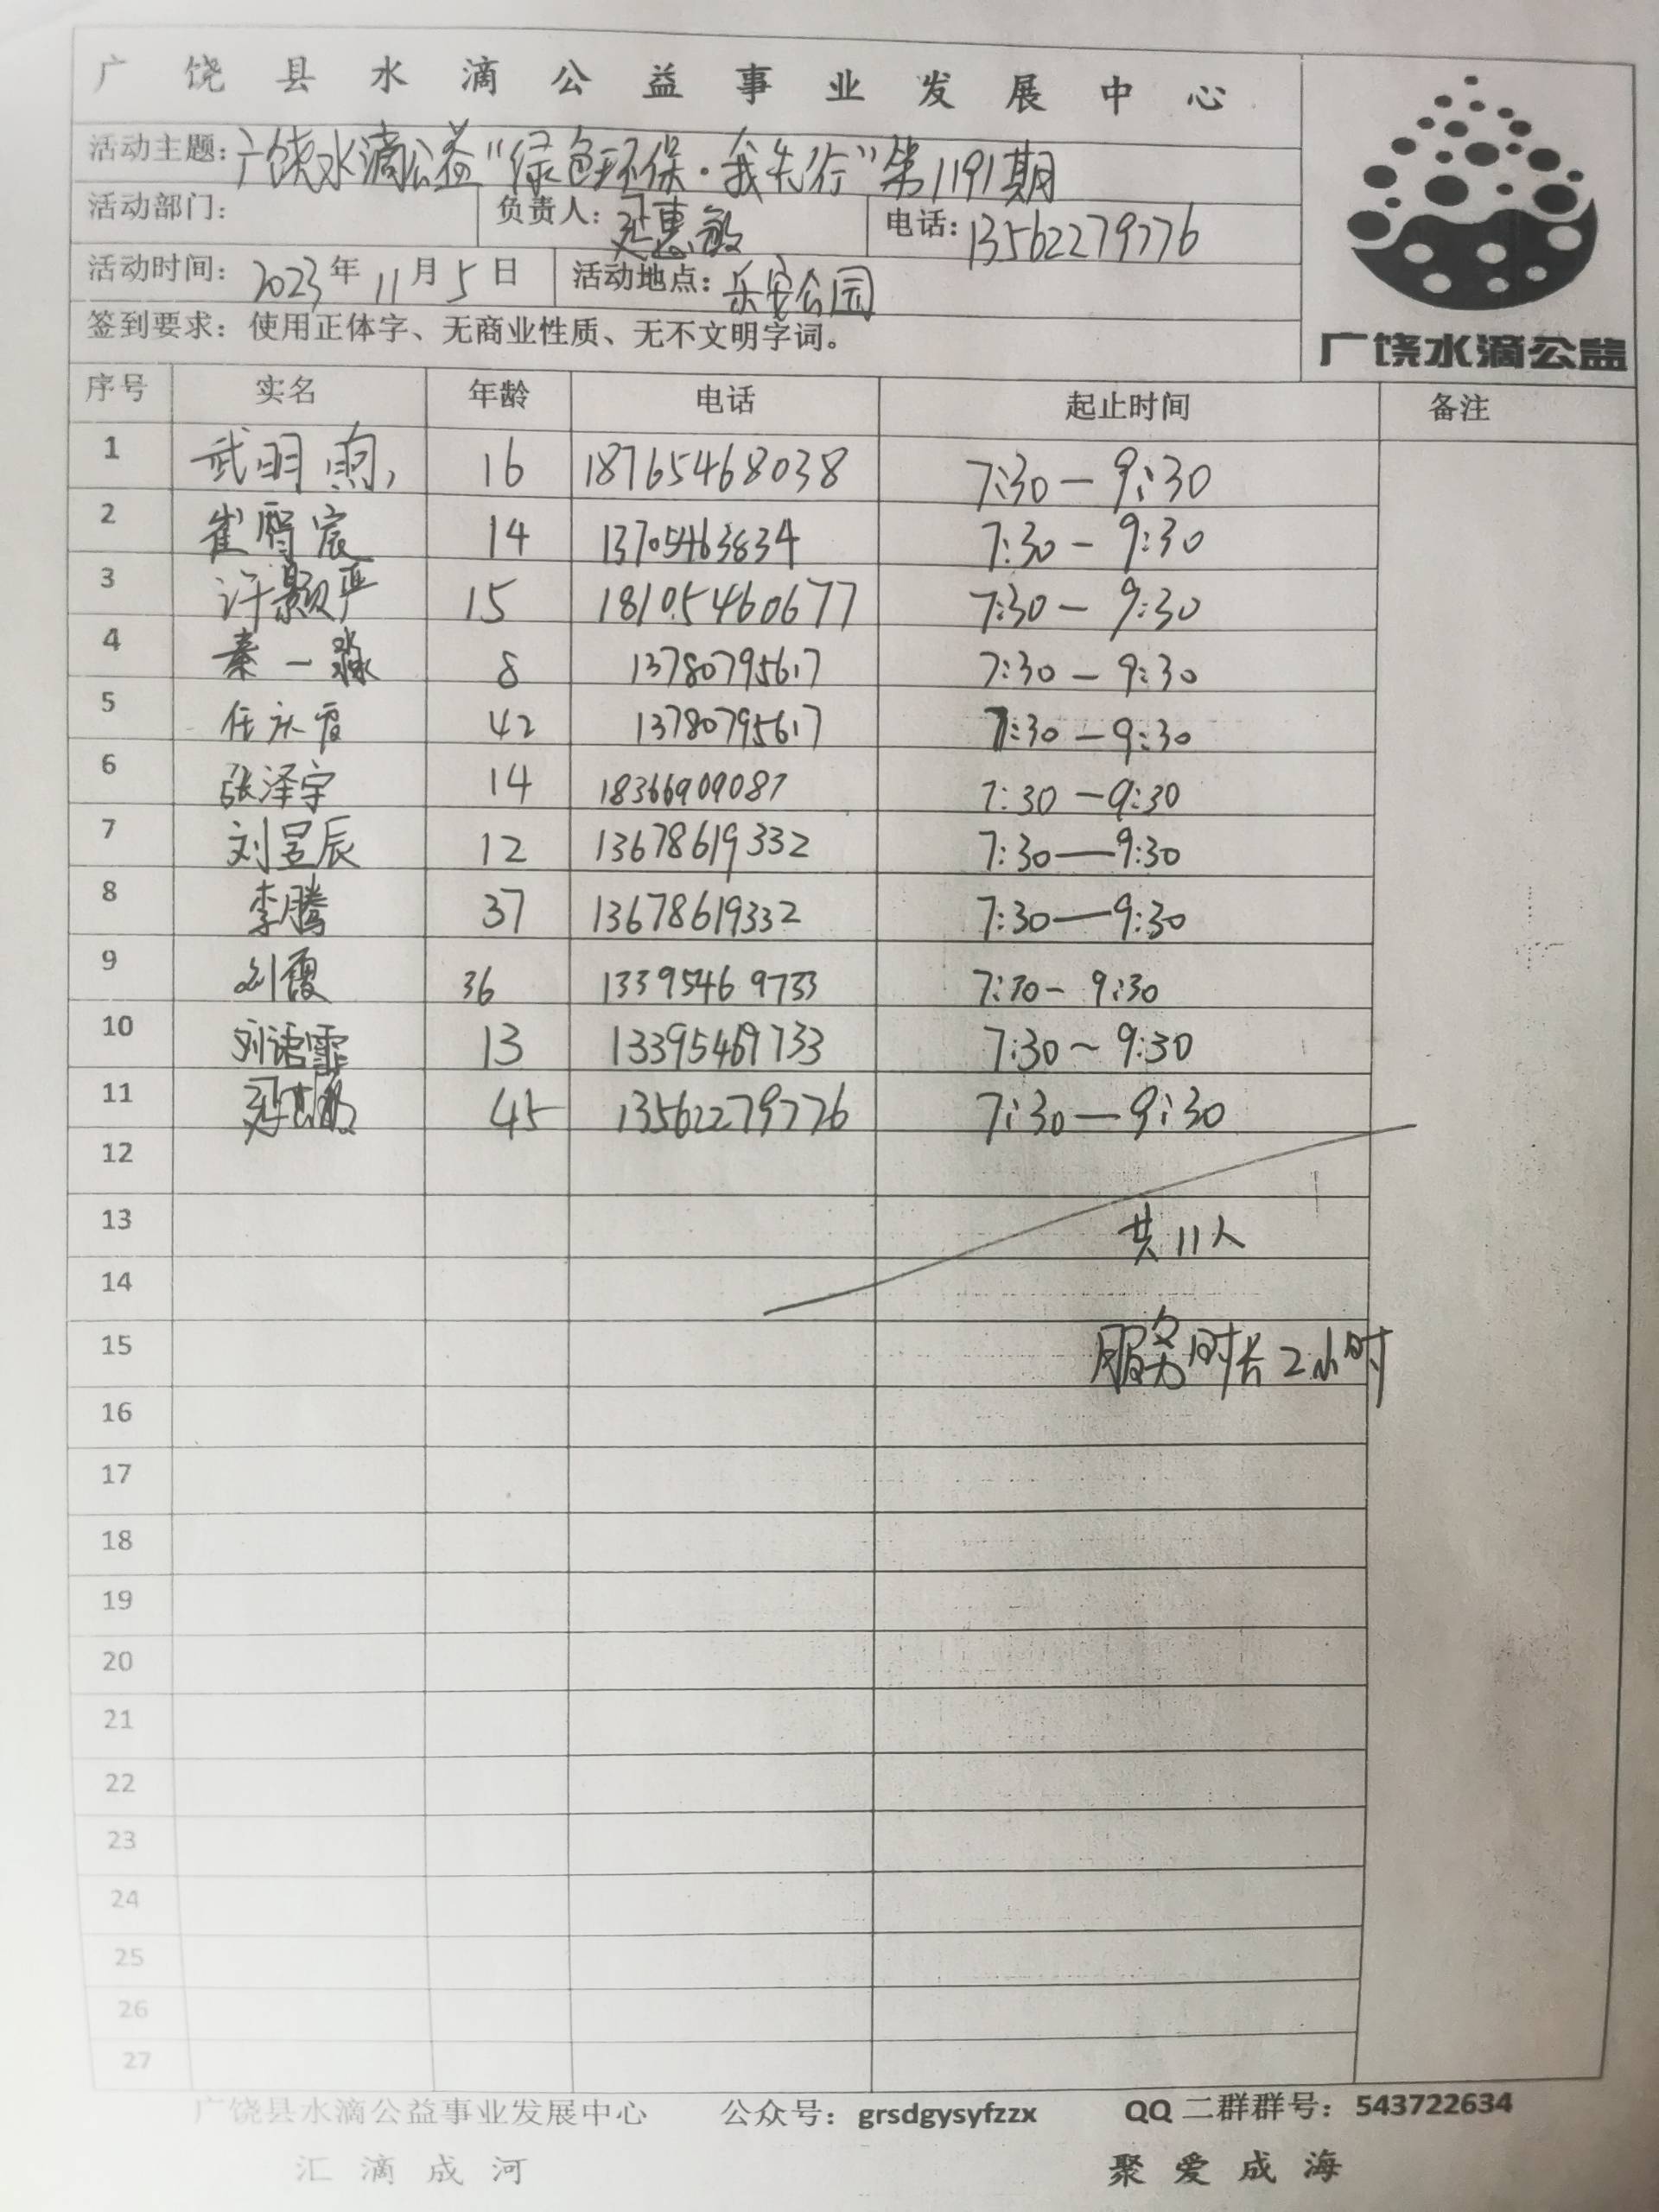 广饶县水滴公益事业发展中心
活动主题：广饶水滴公益“绿色环保·我先行”第1191期
活动部门： 负责人：延惠敏 电话：13562279776
活动时间：2023年11月5日 活动地点：乐安公园
签到要求：使用正体字、无商业性质、无不文明字词。
广饶水滴公益
序号 实名 年龄 电话 起止时间 备注
1 武明煦 16 18765468038 7:30－9:30
2 崔 宸 14 13705463834 7:30－9:30
3 许颢严 15 18105460677 7:30－9:30
4 秦一淼 8 13780795617 7:30－9:30
5 任庆霞 42 13780795617 7:30－9:30
6 张泽宇 14 18366909087 7:30－9:30
7 刘昱辰 12 13678619332 7:30—9:30
8 李腾 37 13678619332 7:30—9:30
9 刘霞 36 13395469733 7:30- 9:30
10 刘语霏 13 13395469733 7:30~9:30
11 延惠敏 45 13562279776 7:30—9:30
12
13 共11人
14
15 服务时长2小时
16
17
18
19
20
21
22
23
24
25
26
27
广饶县水滴公益事业发展中心 公众号：grsdgysyfzzx QQ二群群号：543722634
汇滴成河 聚爱成海